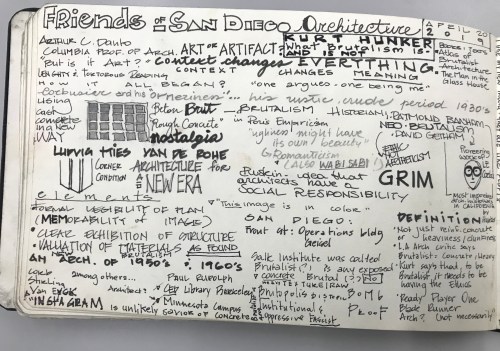 FRIENDS OF SAN DIEGO Architecture
APRIL 20
2 0 1
ARTHUR C. Danto
COLUMBIA PROF. OF ARCH.
ART OR ARTIFACT
KURT HUNKER
What Brutalism is-
AND IS NOT
BOOKS: 100's
Atlas of
Brutalist
Architecture
The Man in the
Glass House
"But is it ART?"
Context changes EVERYTHING
LENGHTY & TORTOROUS READING
CONTEXT CHANGES MEANING
HOW IT ALL BEGAN?
"one argues - one being me"
"Corbusier and his brazenness"... his rustic, crude period 1930's
USING
cast
concrete
in a new
WAY
Beton Brut
"Rough Concrete"
nostalgia
BRUTALISM
in Post Empiricism
"ugliness might have
its own beauty"
Romanticism
(ALSO WABI SABI)
HISTORIANS: RAYMOND BANHAM
NEO-BRUTALISM
DAVID GEBHARD
ETHIC
NOT
AESTHETICISM
GRIM
Pioneering
work of
LUDVIG MIES VAN DE ROHE
CORNER
CONDITION
ARCHITECTURE for
A
NEW ERA
Ruskin- idea that
architects have a
SOCIAL RESPONSIBILITY
elements
"This image is in color"
FORMAL LEGIBILITY OF PLAN
(MEMORABILITY of IMAGE)
• CLEAR EXHIBITION OF STRUCTURE
• VALUATION OF MATERIALS AS FOUND
SAN DIEGO:
Front at: Operations bldg
Geisel
DEFINITION
Not just reinf. concrete
or heaviness / clunkiness
• LA Area critic says
Brutalist: Concrete Library
• Kurt says that, to be
Brutalist it needs to be
having the Ethics
AN ARCH. OF BRUTALISM
1950's 1960's
Salk Institute was called
Brutalist?, is any exposed
concrete Brutal? NO
among others...
PAUL RUDOLPH
Stirling
VAN EYCK
Architect?
CED Library Berkeley
Minnesota Campus
ARCHITECTURE / RAW
Brutopolis DISTOPIC
Institutional &
Oppressive Fascist
BOMB
PROOF
• Ready Player One
• Blade Runner
Arch? (not necessarily)
"INSTAGRAM is unlikely SAVIOR OF CONCRETE